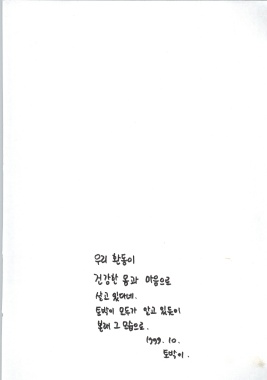 우리 환동이
건강한 몸과 마음으로
살고 있다네.
토박이 모두가 알고 있듯이
본래 그 모습으로.
1999. 10.
토박이.